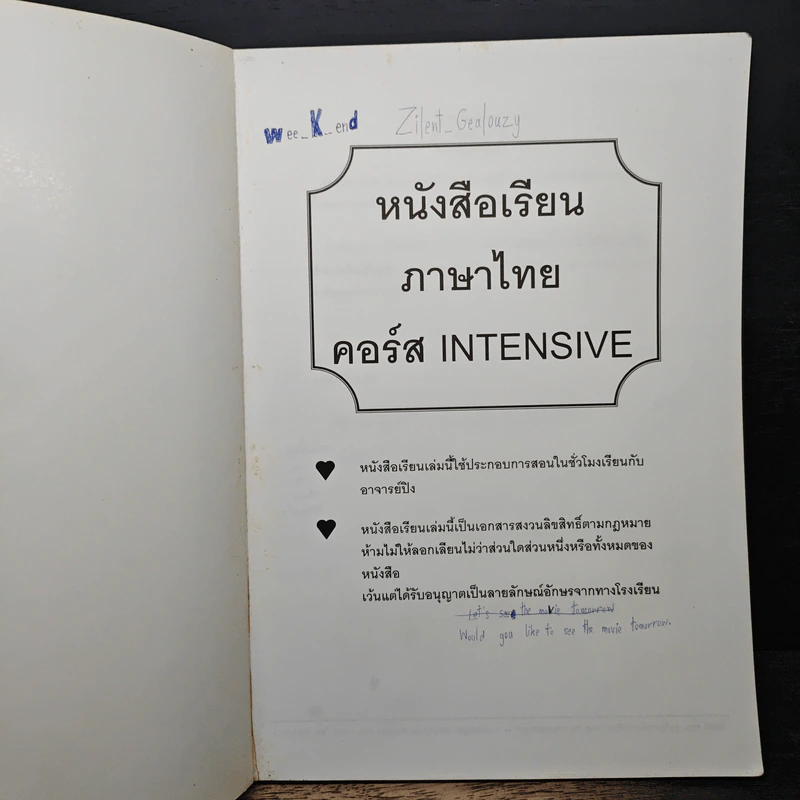 wee_K_end Zilent_Gealouzy
หนังสือเรียน
ภาษาไทย
คอร์ส INTENSIVE
หนังสือเรียนเล่มนี้ใช้ประกอบการสอนในชั่วโมงเรียนกับ
อาจารย์ปิง
หนังสือเรียนเล่มนี้เป็นเอกสารสงวนลิขสิทธิ์ตามกฎหมาย
ห้ามไม่ให้ลอกเลียนไม่ว่าส่วนใดส่วนหนึ่งหรือทั้งหมดของ
หนังสือ
เว้นแต่ได้รับอนุญาตเป็นลายลักษณ์อักษรจากทางโรงเรียน
Let's see the movie tomorrow
Would you like to see the movie tomorrow.